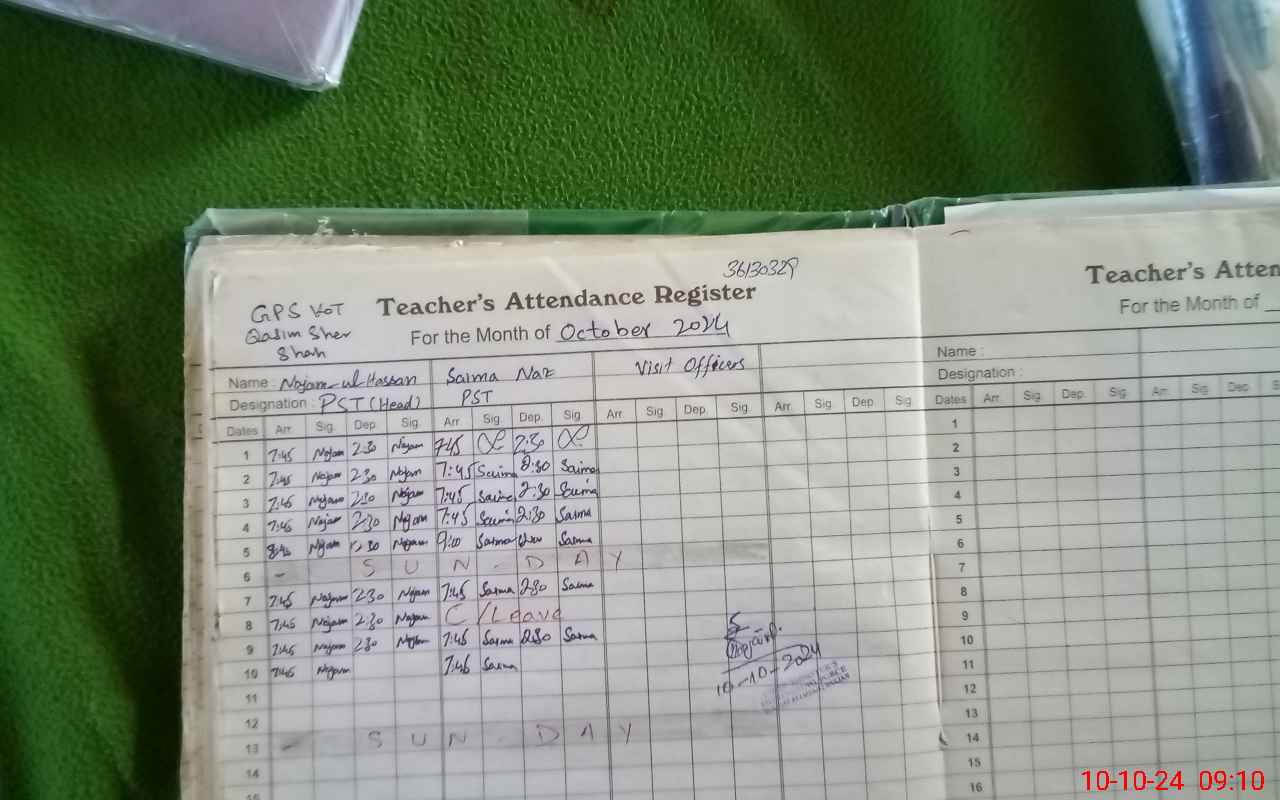 36130329
GPS KOT
Qasim Sher
Shah
Teacher's Attendance Register
For the Month of October 2024
Name : Najam-ul-Hassan Saima Naz Visit Officers
Designation : PST (Head) PST
Dates Arr. Sig. Dep. Sig. Arr. Sig. Dep. Sig. Arr. Sig. Dep. Sig. Arr. Sig. Dep. Sig
1 7:45 Najam 2:30 Najam 7:45 2:30
2 7:45 Najam 2:30 Najam 7:45 Saima 2:30 Saima
3 7:45 Najam 2:30 Najam 7:45 Saima 2:30 Saima
4 7:45 Najam 2:30 Najam 7:45 Saima 2:30 Saima
5 Najam Najam 9:00 Saima Saima
6 - SUN-DAY
7 7:45 Najam 2:30 Najam 7:45 Saima 2:30 Saima
8 7:45 Najam 2:30 Najam C/Leave
9 7:45 Najam 2:30 Najam 7:45 Saima 2:30 Saima
10 7:45 Najam 7:45 Saima
11
12
13 - SUN-DAY
14
15
10-10-2024
Teacher's Atten
For the Month of
Name :
Designation :
Dates Arr. Sig. Dep. Sig. Arr. Sig. Dep. S
1
2
3
4
5
6
7
8
9
10
11
12
13
14
15
16
10-10-24 09:10